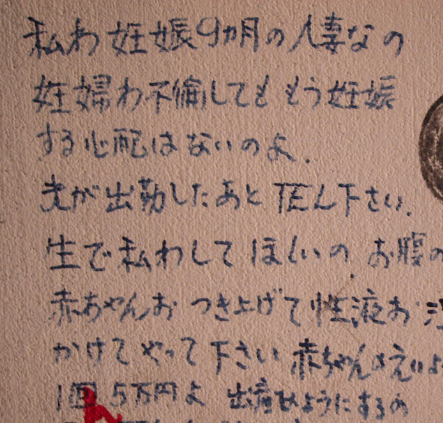 私わ妊娠9カ月の人妻なの
妊婦わ不倫してももう妊娠
する心配はないのよ.
夫が出勤したあと TEん下さい.
生で私わしてほしいの お腹の
赤ちゃんお つき上げて性液お
かけてやって下さい 赤ちゃんの
1回 5万円よ